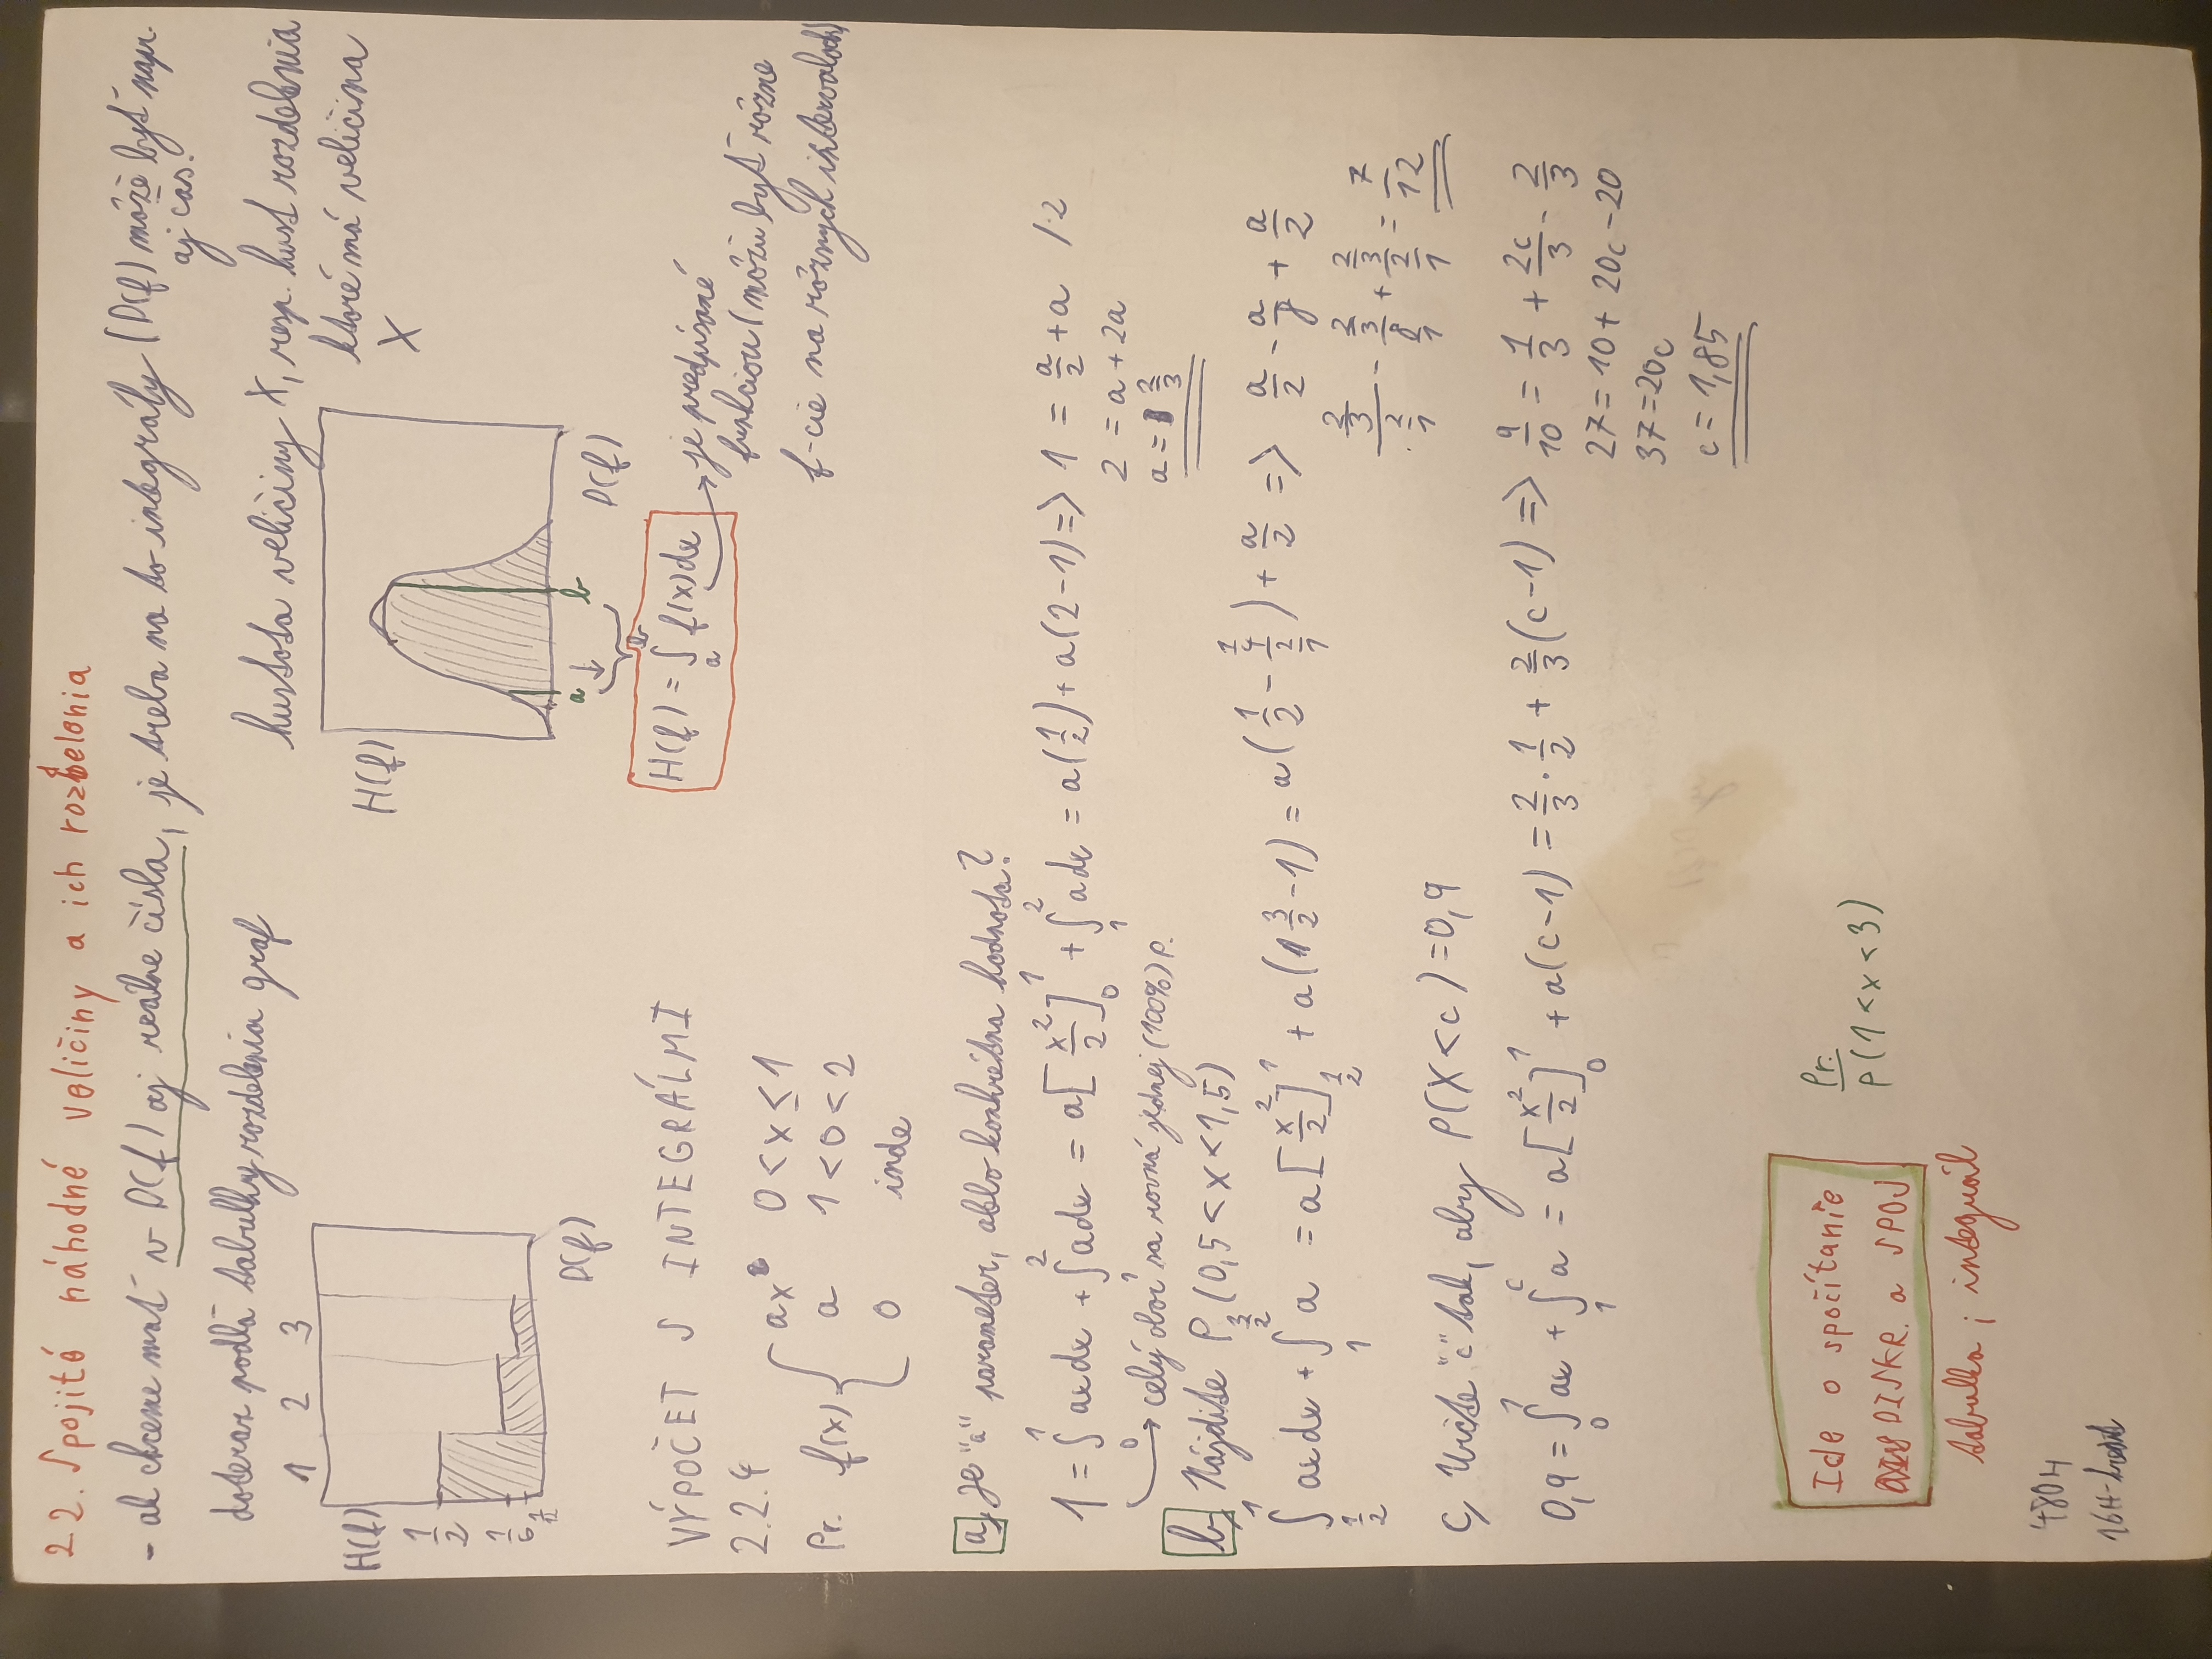 2.2. Spojité náhodné veličiny a ich rozdelenia
- ak chceme mať v D(f) aj reálne čísla, je treba na to integrály (D(f) môže byť napr.
aj čas.
doteraz podľa tabuľky rozdelenia graf
hustota veličiny X, resp. hust rozdelenia
ktoré má veličina
X
1 2 3
H(f)
1/2
1/6
1/12
D(f)
H(f)
a b
D(f)
H(f) = ∫_a^b f(x)dx
je predpísané
funkciou (môžu byť rôzne
f-cie na rôznych intervaloch)
VÝPOČET S INTEGRÁLMI
2.2.4
Pr. f(x) {
ax 0 < x ≤ 1
a 1 < 0 < 2
0 inde
a, Je "a" parameter, alebo konkrétna hodnota?
1 = ∫_0^1 ax dx + ∫_1^2 a dx = a[x²/2]_0^1 + ∫_1^2 a dx = a(1/2) + a(2-1) => 1 = a/2 + a /·2
2 = a + 2a
a = 2/3
celý obor sa rovná jednej (100%) P.
b, Nájdite P (0,5 < x < 1,5)
∫_{1/2}^1 ax dx + ∫_1^{3/2} a = a[x²/2]_{1/2}^1 + a(3/2 - 1) = a(1/2 - (1/4)/(2/1)) + a/2 => a/2 - a/8 + a/2
(2/3)/(2/1) - (2/3)/(8/1) + (2/3)/(2/1) = 7/12
c, Určte "c" tak, aby P(X < c) = 0,9
0,9 = ∫_0^1 ax + ∫_1^c a = a[x²/2]_0^1 + a(c-1) = 2/3 · 1/2 + 2/3 (c-1) => 9/10 = 1/3 + 2c/3 - 2/3
27 = 10 + 20c - 20
37 = 20c
c = 1,85
Ide o spočítanie
DISKR. a SPOJ
tabulka ; integrál
Pr.
P(1 < x < 3)
480H
16H-kredit